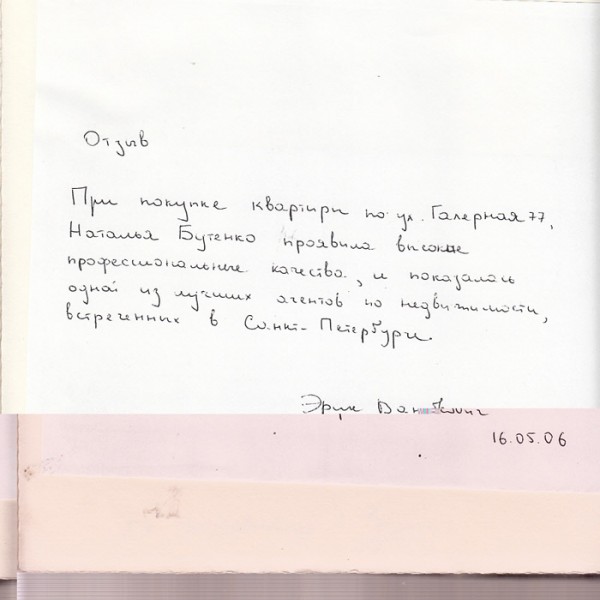 Отзыв
При покупке квартири по ул. Галерная 77,
Наталья Бутенко проявила високие
професиональные качества, и показалась
одной из лучших агентов по недвижимости,
встреченных в Санкт-Петербурги.
Эрик
16.05.06